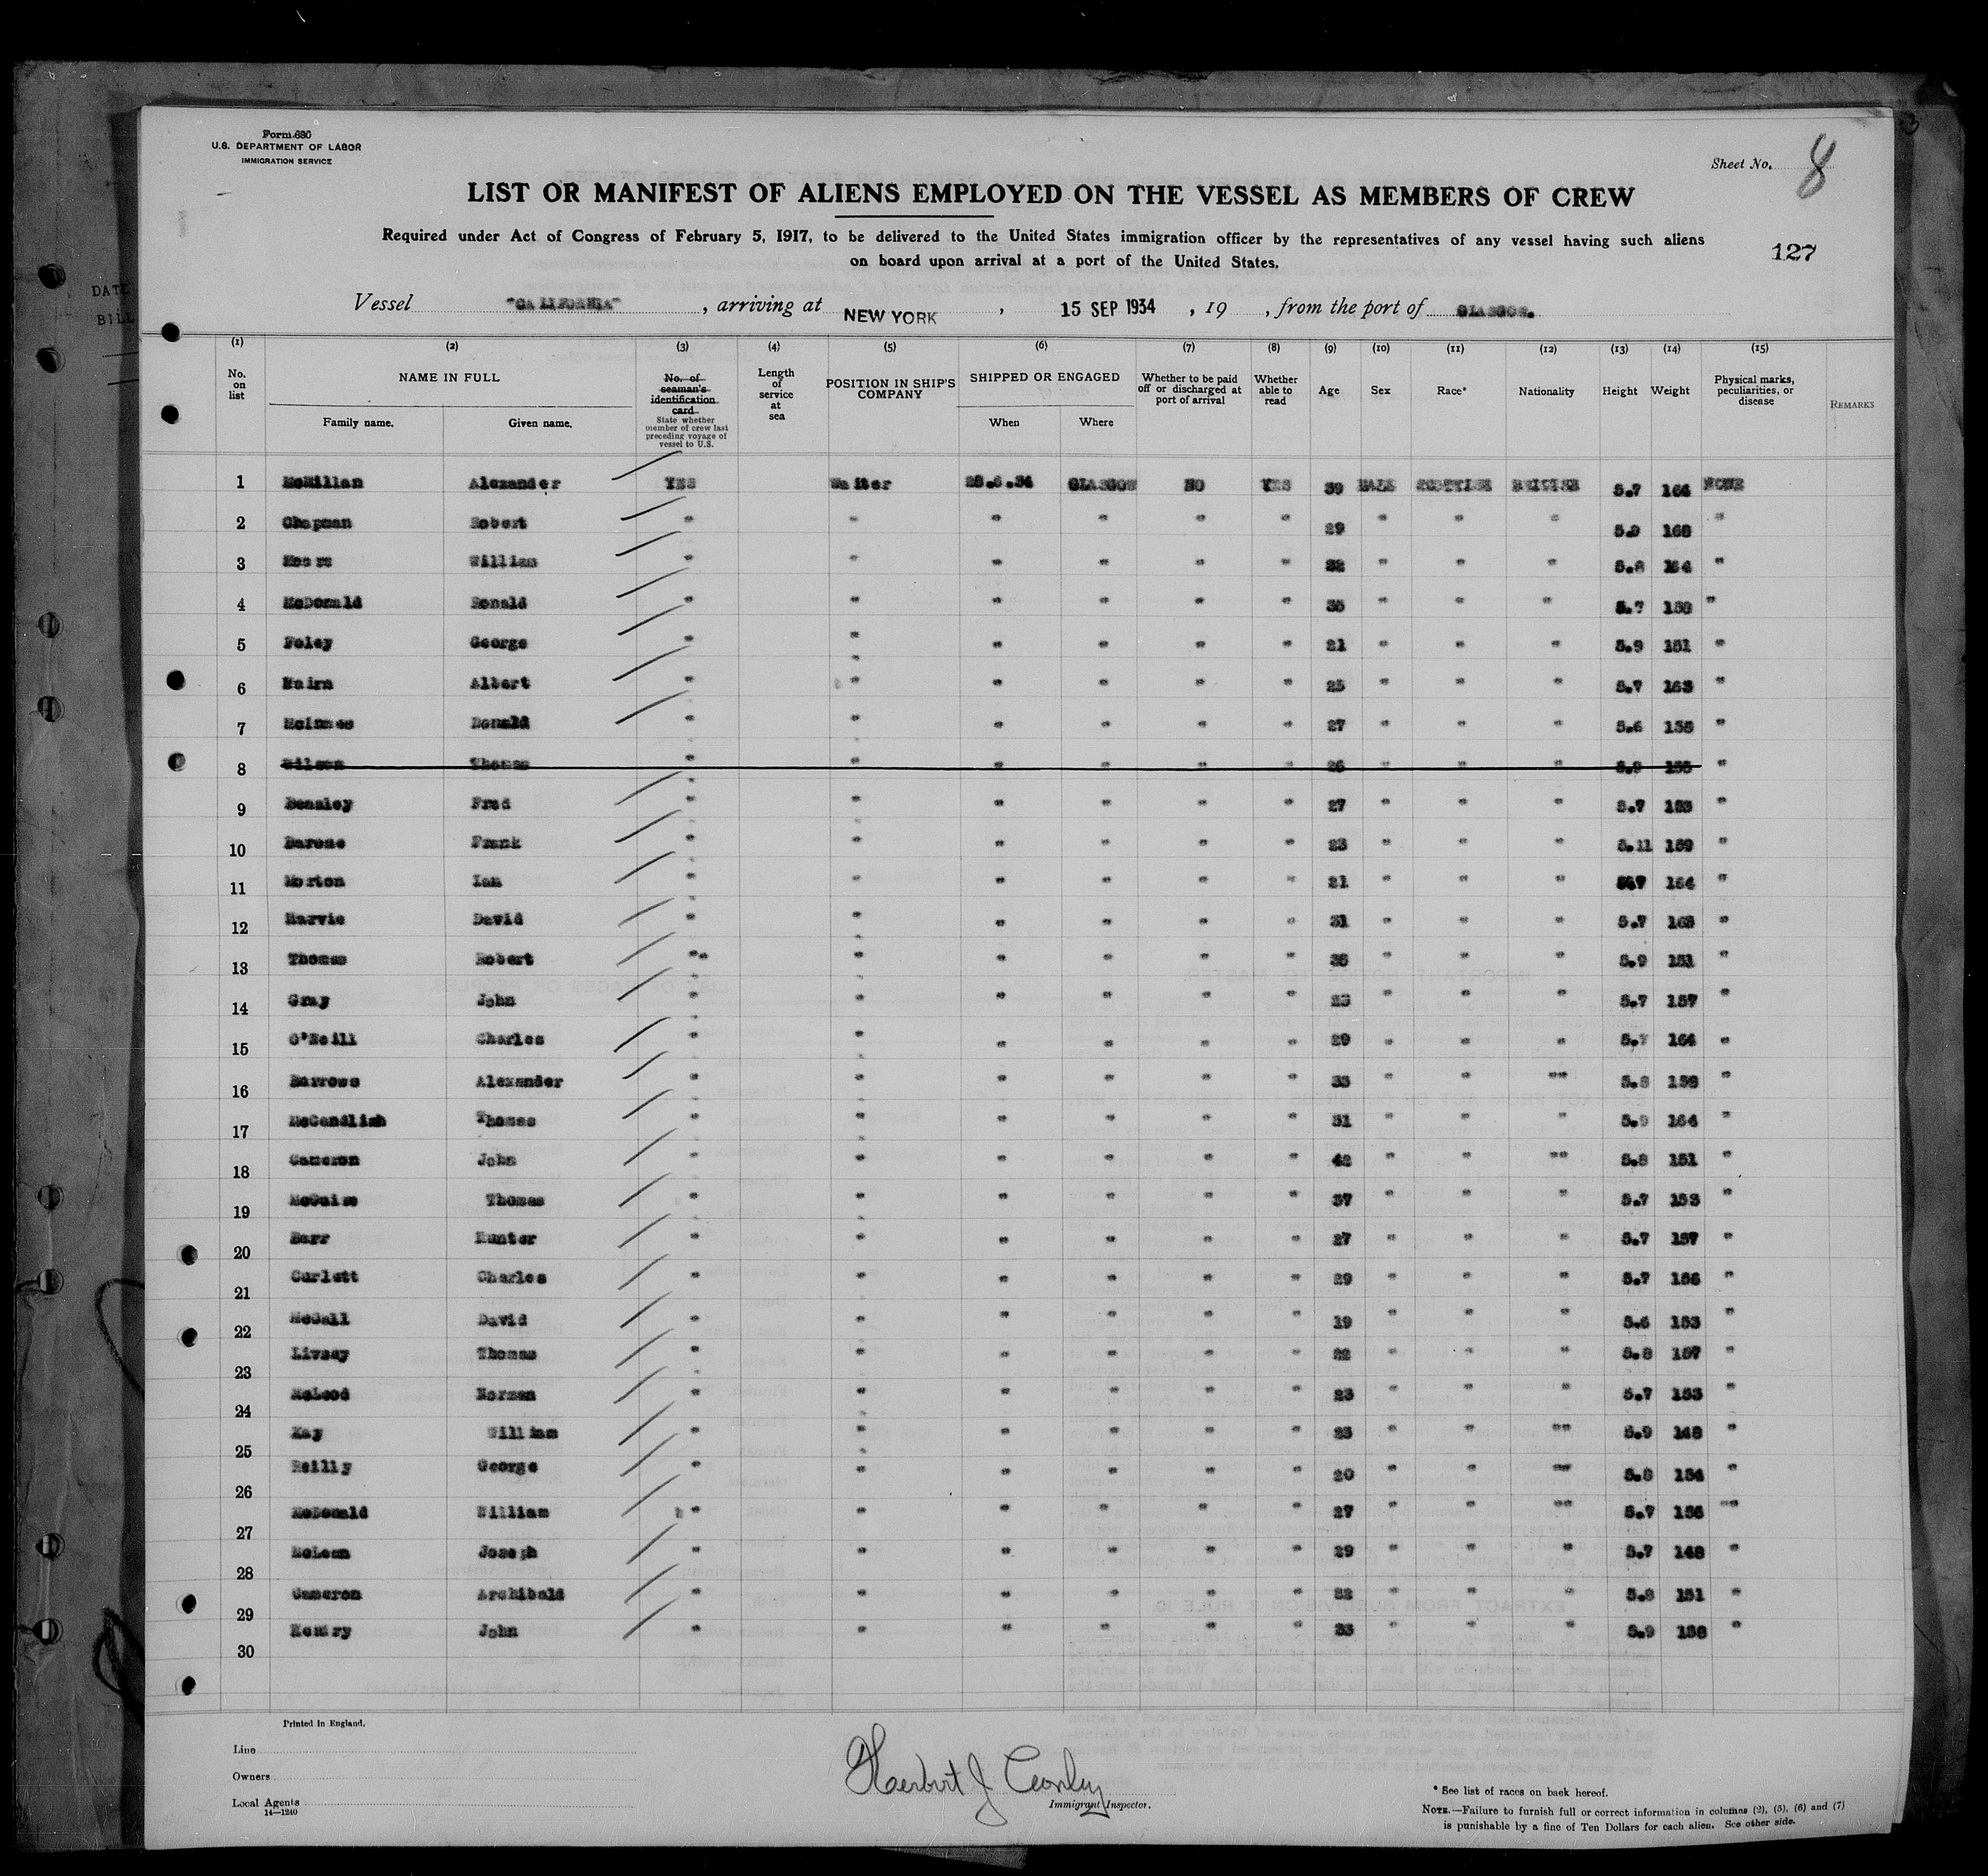 Form 680
U.S. DEPARTMENT OF LABOR
IMMIGRATION SERVICE
Sheet No. 8
LIST OR MANIFEST OF ALIENS EMPLOYED ON THE VESSEL AS MEMBERS OF CREW
Required under Act of Congress of February 5, 1917, to be delivered to the United States immigration officer by the representatives of any vessel having such aliens
on board upon arrival at a port of the United States.
127
DATE
BILL
Vessel "CALIFORNIA", arriving at NEW YORK, 15 SEP 1934, 19 , from the port of GLASGOW.
(1) (2) (3) (4) (5) (6) (7) (8) (9) (10) (11) (12) (13) (14) (15)
No. on list
NAME IN FULL
Family name. Given name.
No. of seaman's identification card
State whether member of crew last preceding voyage of vessel to U.S.
Length of service at sea
POSITION IN SHIP'S COMPANY
SHIPPED OR ENGAGED
When Where
Whether to be paid off or discharged at port of arrival
Whether able to read
Age
Sex
Race*
Nationality
Height
Weight
Physical marks, peculiarities, or disease
REMARKS
1 McMillan Alexander YES Waiter 28.6.34 GLASGOW NO YES 39 MALE SCOTTISH BRITISH 5.7 164 NONE
2 Chapman Robert " " " " " " 29 " " " 5.9 168 "
3 William " " " " " " 32 " " " 5.8 "
4 McDonald Ronald " " " " " " 35 " " " 5.7 158 "
5 Foley George " " " " " " 21 " " " 5.9 151 "
6 Nairn Albert " " " " " " 25 " " " 5.7 163 "
7 McInnes Donald " " " " " " 27 " " " 5.6 158 "
8 Wilson Thomas " " " " " " 26 " " " 5.9 "
9 Beasley Fred " " " " " " 27 " " " 5.7 153 "
10 Frank " " " " " " 23 " " " 5.11 159 "
11 Morton Ian " " " " " " 21 " " " 164 "
12 Harvie David " " " " " " 31 " " " 5.7 "
13 Thomas Robert " " " " " " " " " 5.9 151 "
14 Gray John " " " " " " 23 " " " 5.7 157 "
15 O'Neill Charles " " " " " " 29 " " " 5.7 164 "
16 Barrows Alexander " " " " " " 33 " " "" 5.8 158 "
17 McCandlish Thomas " " " " " " 31 " " " 5.9 164 "
18 Cameron John " " " " " " 42 " " "" 5.8 151 "
19 McGuire Thomas " " " " " " 37 " " " 5.7 153 "
20 Barr Hunter " " " " " " 27 " " " 5.7 157 "
21 Curlett Charles " " " " " " 29 " " " 5.7 156 "
22 McCall David " " " " " " 19 " " " 5.6 153 "
23 Livsey Thomas " " " " " " 22 " " " 5.8 157 "
24 McLeod Norman " " " " " " 23 " " " 5.7 153 "
25 Kay William " " " " " " 25 " " "" 5.9 148 "
26 Reilly George " " " " " " 20 " " "" 5.8 154 "
27 McDonald William " " " " " " 27 " " "" 5.7 156 ""
28 McLean Joseph " " " " " " 29 " " " 5.7 148 "
29 Cameron Archibald " " " " " " 32 " " " 5.8 151 "
30 John " " " " " " 33 " " " 5.9 158 "
Printed in England.
Line
Owners
Local Agents
14—1240
Herbert J
Immigrant Inspector.
* See list of races on back hereof.
NOTE.—Failure to furnish full or correct information in columns (2), (5), (6) and (7)
is punishable by a fine of Ten Dollars for each alien. See other side.